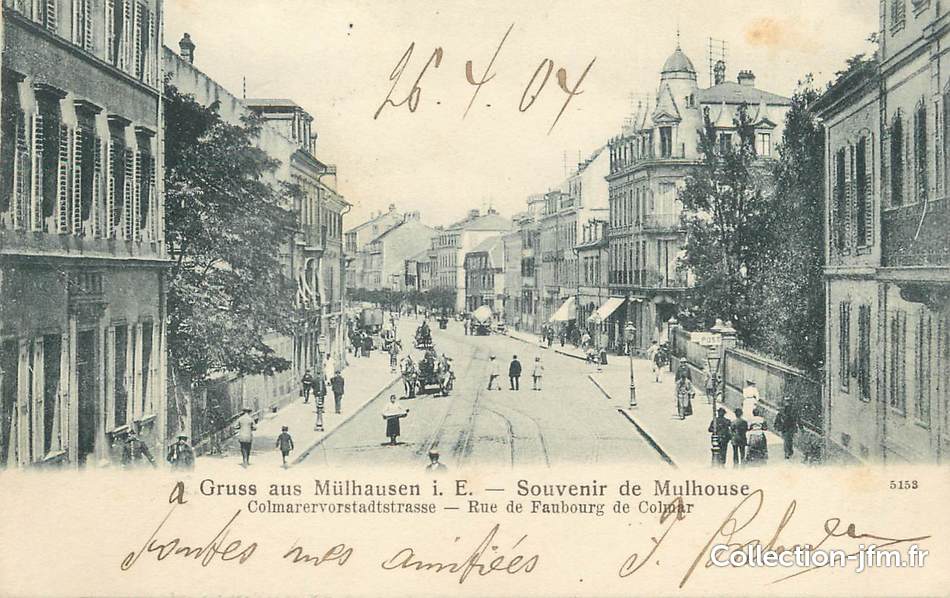 26.4.04
Gruss aus Mülhausen i. E. – Souvenir de Mulhouse
5153
Colmarervorstadtstrasse – Rue de Faubourg de Colmar
a toutes mes amitiés.
Collection-jfm.fr